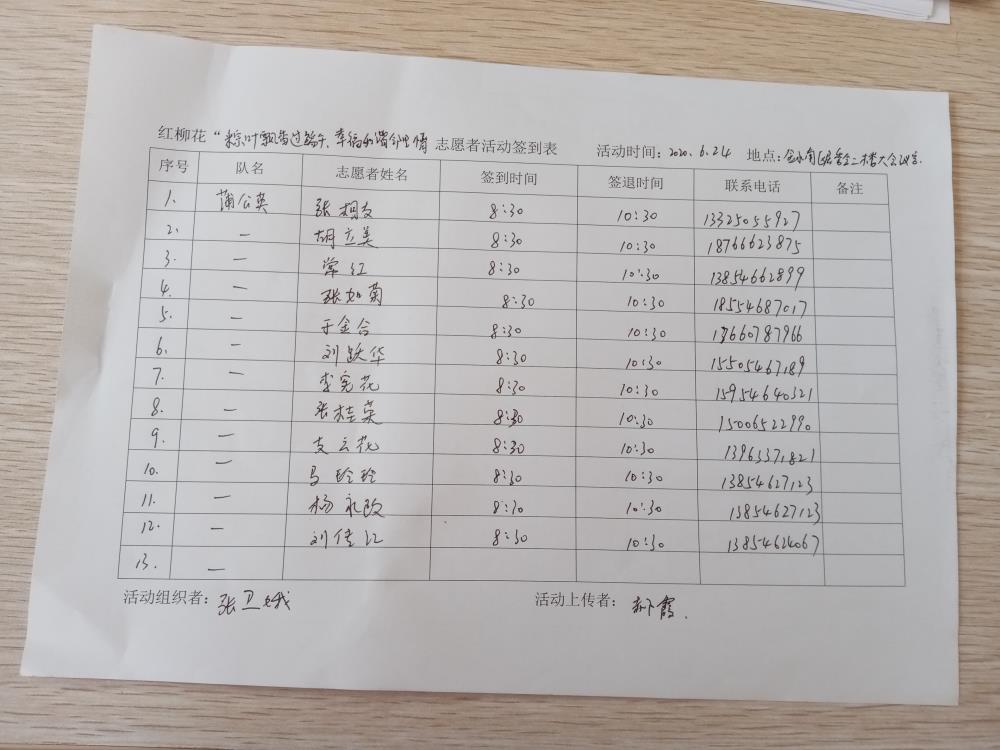 红柳花 "粽叶飘香过端午、幸福和谐邻里情 志愿者活动签到表 活动时间：2020.6.24 地点：
序号 队名 志愿者姓名 签到时间 签退时间 联系电话 备注
1. 蒲公英 张桐友 8:30 10:30 13325055927
2. — 胡立美 8:30 10:30 18766623875
3. — 常红 8:30 10:30 13854662899
4. — 张如菊 8:30 10:30 18554687017
5. — 于金合 8:30 10:30 17660787966
6. — 刘跃华 8:30 10:30 15505467189
7. — 李宪花 8:30 10:30 15954640321
8. — 张桂荣 8:30 10:30 15006522990
9. — 支云花 8:30 10:30 13963371821
10. — 马玲玲 8:30 10:30 13854627123
11. — 杨永改 8:30 10:30 13854627123
12. — 刘佳江 8:30 10:30 13854624067
13. —
活动组织者：张卫娥 活动上传者：郝霞.